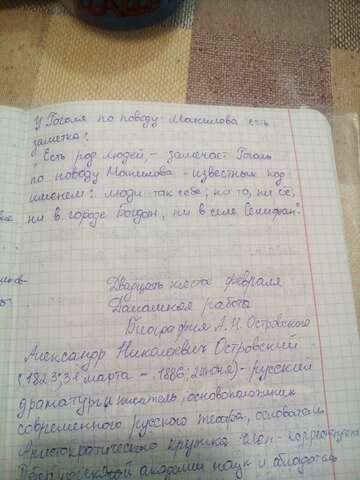 У Гоголя по поводу Манилова есть
заметка:
"Есть род людей,- замечает Гоголь
по поводу Манилова - известных под
именем: люди так себе, ни то, ни се,
ни в городе Богдан, ни в селе Селифан".
Двадцать шестое февраля
Домашняя работа
Биография А.Н. Островского
Александр Николаевич Островский
(1823; 31 марта - 1886; 2 июня) - русский
драматург и писатель, основоположник
современного русского театра, основатель
Аристократического кружка член-корреспондент
академии наук и обладатель